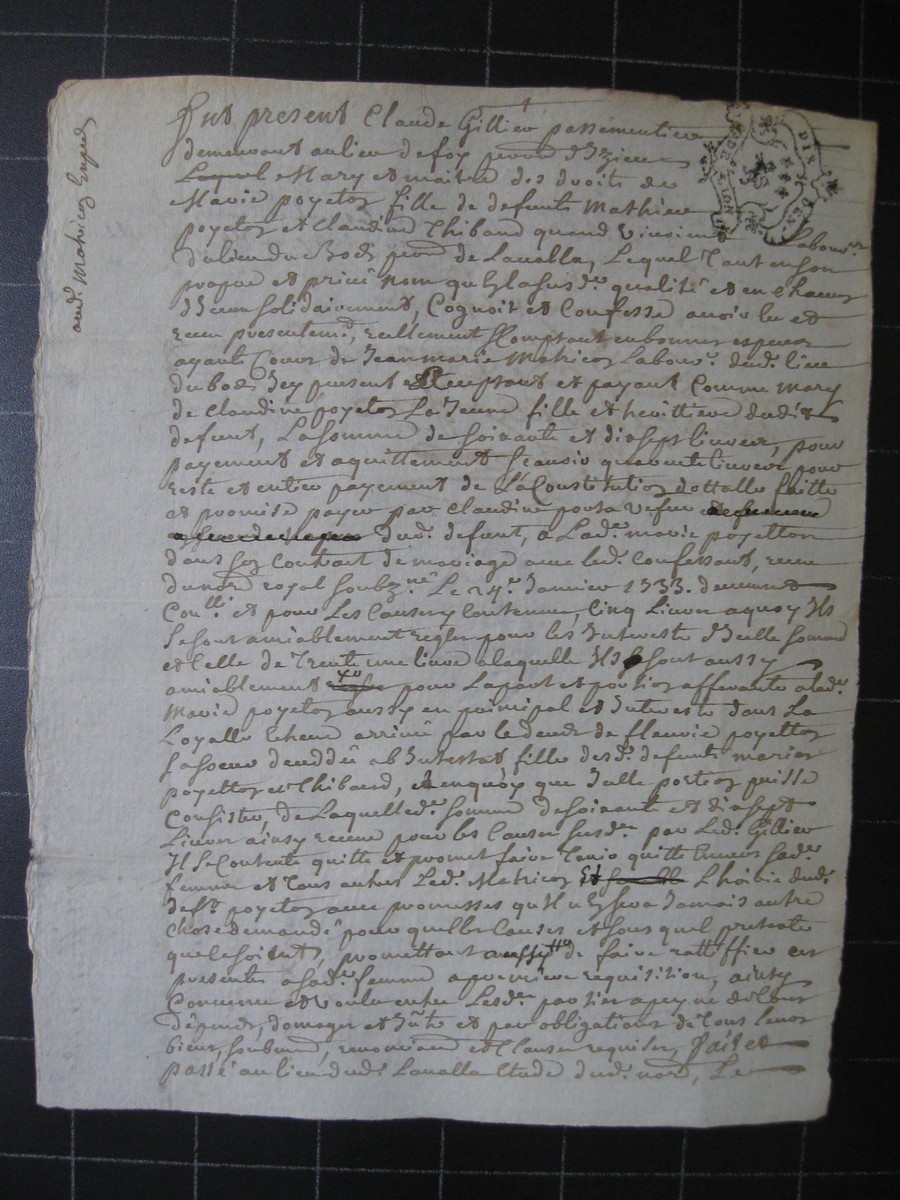 Fut present Claude Gillier passementier
demeurant au lieu de foy parr. d'Izieu
Lequel Mary et maitre des droits de
Marie poyeton fille de defunts Mathieu
poyeton et Claudine Thibaud quand vivoient labour.
du lieu du Bost parr. de Lavalla, Lequel tant en son
propre et privé nom qu'en la susd. qualité et en chacun
d'eux solidairement, Cognoit et Confesse avoir eu et
receu presentem., reellement Comptant en bonnes especes
ayant Cours de Jean marie Matricon Labour. dud. lieu
du bost icy present acceptant et payant Comme mary
de Claudine poyeton La Jeune fille et heritiere dudit
defunt, La somme de soixante et dix sept livres, pour
payement et aquittement scavoir quarante livres pour
reste et entier payement de la Constitution dottalle faitte
et promise payer par Claudine vefve
dud. defunt, a Lad. marie poyetton
dans son contract de mariage avec led. confessant, receu
du not. royal soubz.né Le 24e Janvier 1733. deuement
Con.llé et pour Les Causes y Contenues, Cinq Livres a quoy Ils
se sont amiablement reglés pour les Interests d'Icelle somme
et Celle de trente une livre a laquelle Ils se sont aussy
amiablement pour La part et portion afferante a lad.
Marie poyeton aussy en principal et Interests dans La
Loyalle Echeue arrivée par le deceds de fleurie poyetton
sa soeur decedée ab Intestat fille desd. defunts mariés
poyetton et Thibaud, et en quoy que d'Icelle portion puisse
Consister, de Laquelle d. somme de soixante et dix sept
Livres ainsy receue pour les Causes susd. par Led. Gillier
Il se Contente quitte et promet faire tenir quitte Envers sad.
femme et tous autres Led. Matricon L'hoirie dud.
def. poyeton avec promesses qu'Il n'en sera Jamais autre
chose demandé pour quelles Causes et sous quel pretexte
que ce soient, promettant de faire rattiffier ces
presentes a sad. femme a premiere requisition, ainsy
Convenu et voulu entre Lesd. parties a peyne de tous
depends, domages et Int. et par obligations de tous leurs
biens, soubm., renonciaons et clauses requises, fait et
passé au lieu dud. Lavalla Etude dud. nore, Le